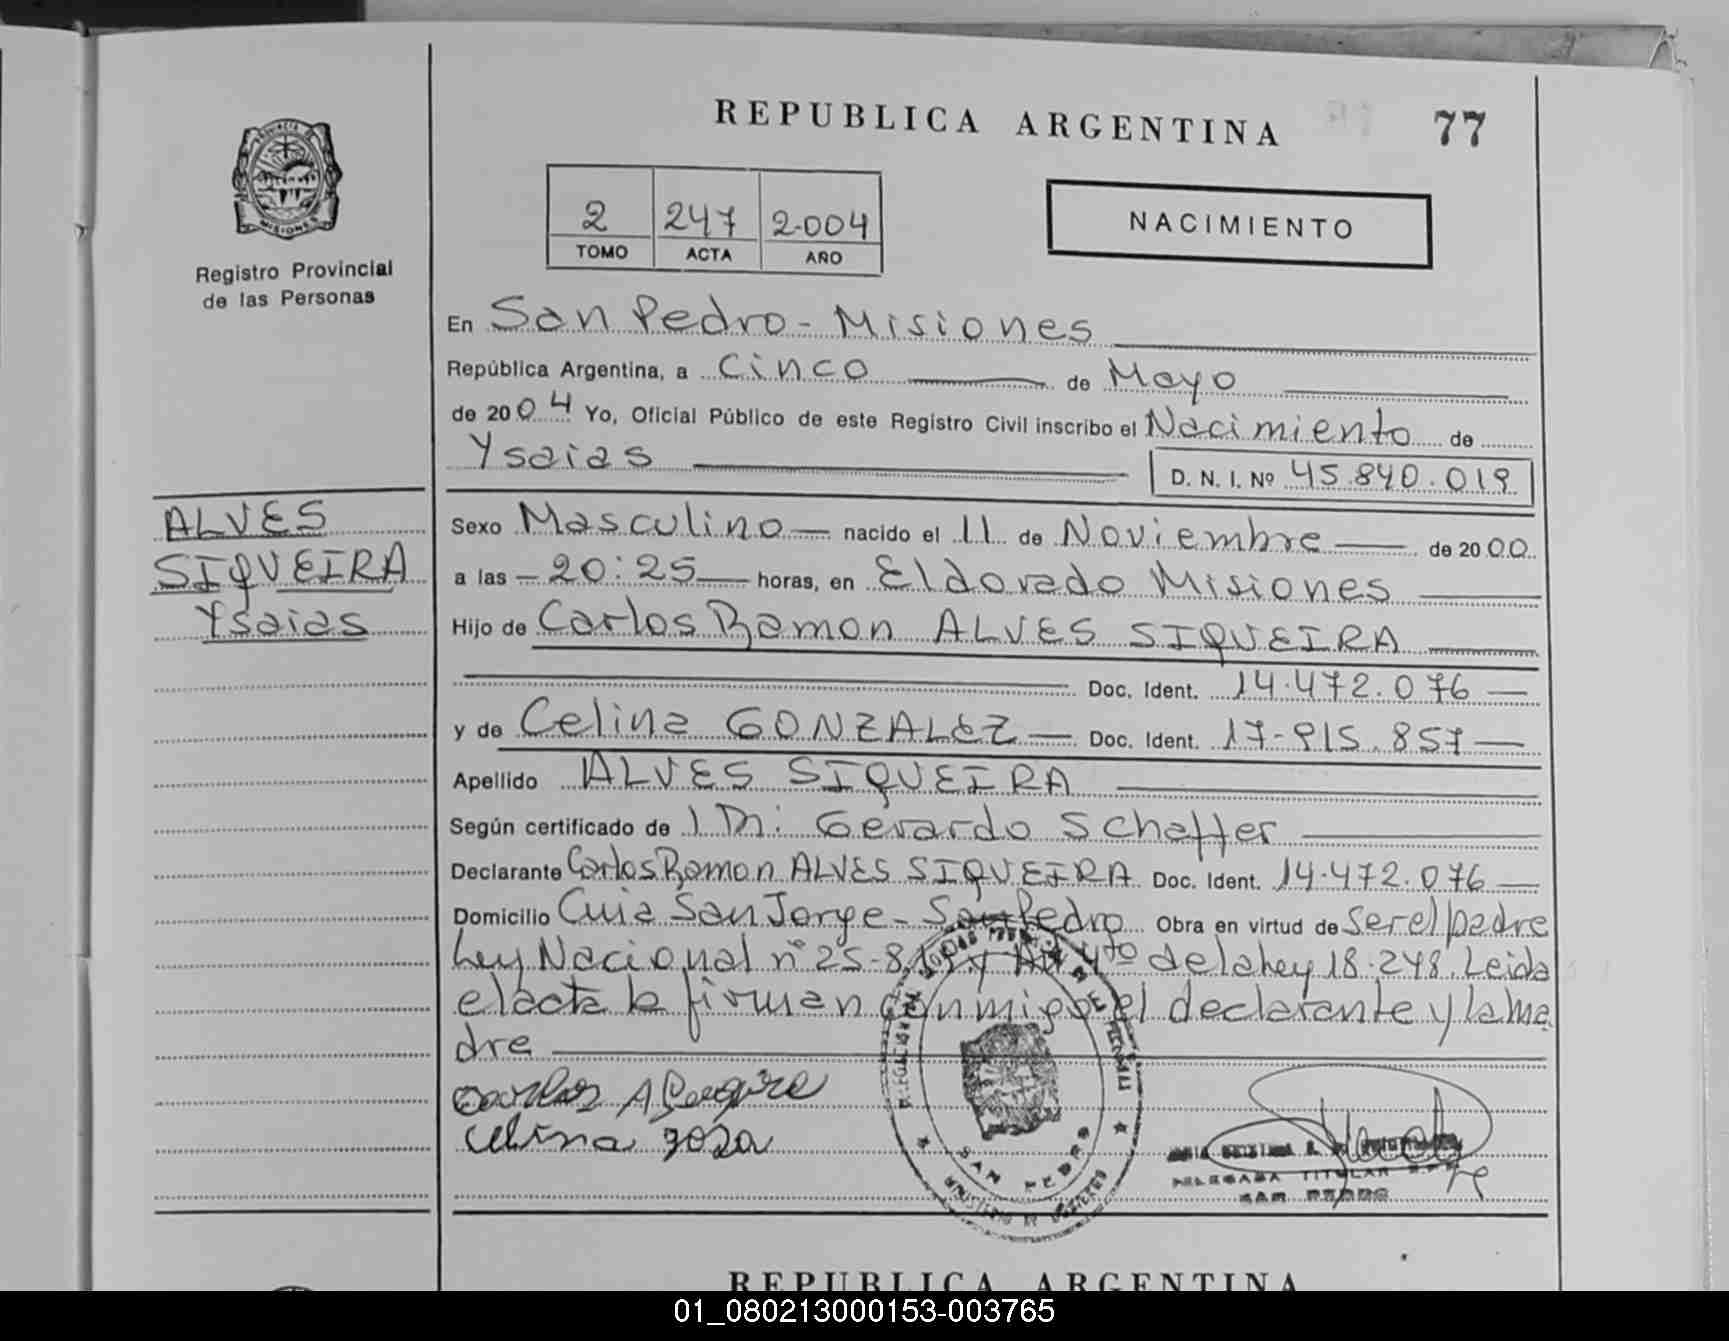 REPUBLICA ARGENTINA 77
PROVINCIA DE
MISIONES
Registro Provincial
de las Personas
2 247 2.004
TOMO ACTA AÑO
NACIMIENTO
En San Pedro - Misiones
República Argentina, a Cinco de Mayo
de 2004 Yo, Oficial Público de este Registro Civil inscribo el Nacimiento de
Ysaias D. N. I. Nº 45.840.019
ALVES
SIQUEIRA
Ysaias
Sexo Masculino nacido el 11 de Noviembre de 2000
a las 20:25 horas, en Eldorado Misiones
Hijo de Carlos Ramon ALVES SIQUEIRA
Doc. Ident. 14.472.076
y de Celina GONZALEZ Doc. Ident. 17-915.857
Apellido ALVES SIQUEIRA
Según certificado de Gerardo Schaffer
Declarante Carlos Ramon ALVES SIQUEIRA Doc. Ident. 14.472.076
Domicilio Cuia San Jorge - San Pedro Obra en virtud de Ser el padre
Ley Nacional nº 25-819 y Art 4to de la ley 18.248. Leida
el acta la firman conmigo el declarante y la ma
dre
Carlos A
Celina
SAN PEDRO
MINISTERIO DE GOBIERNO
TITULAR
SAN PEDRO
REPUBLICA ARGENTINA
01_080213000153-003765